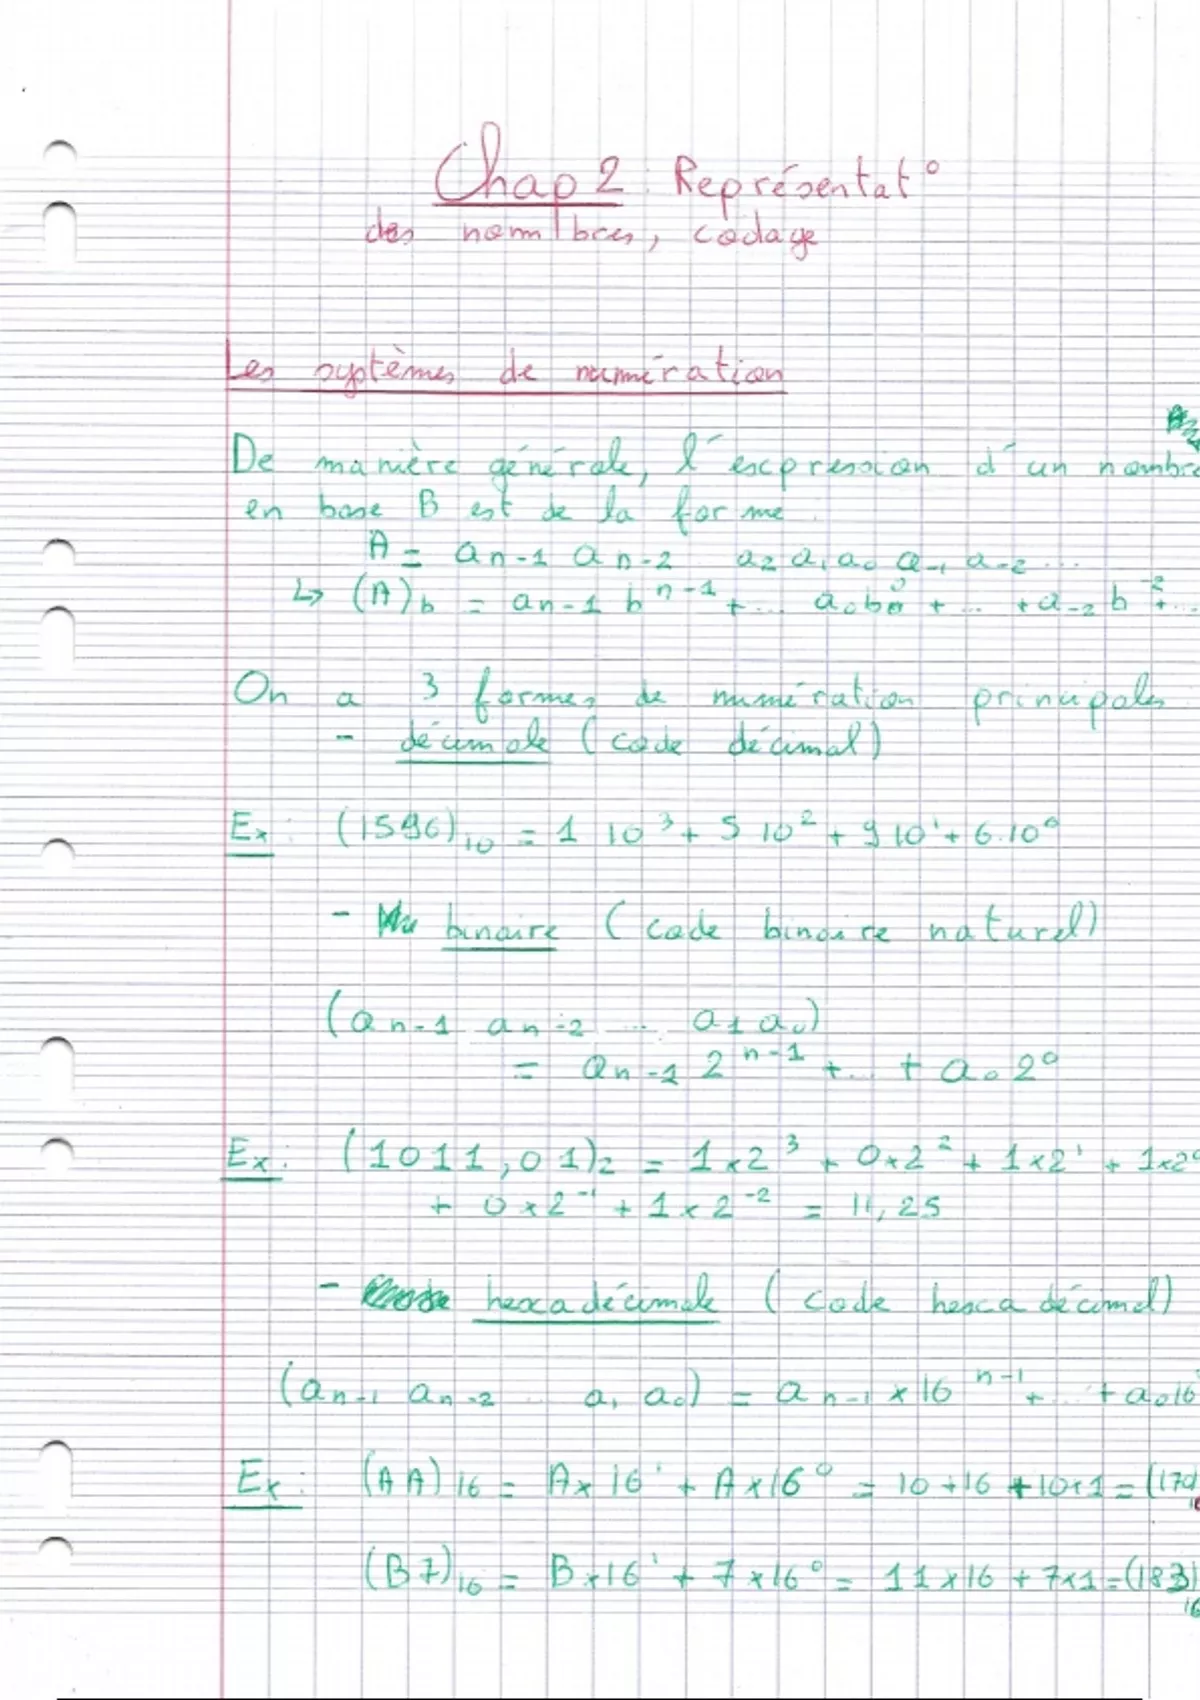 Chap 2 : Représentat°
des nombres, codage
Les systèmes de numération
De manière générale, l'expression d'un nombre
en base B est de la forme
A = an-1 an-2 a2 a1 a0 a-1 a-2 ...
↳ (A)b = an-1 b^n-1 + ... a0b^0 + ... + a-2 b^-2 + ...
On a 3 formes de numération principales
- décimale (code décimal)
Ex : (1596)10 = 1 10^3 + 5 10^2 + 9 10^1 + 6.10^0
- binaire (code binaire naturel)
(an-1 an-2 ... a1 a0)
= an-1 2^n-1 + ... + a0 2^0
Ex : (1011,01)2 = 1×2^3 + 0×2^2 + 1×2^1 + 1×2^0
+ 0×2^-1 + 1×2^-2 = 11,25
- hexadécimale (code hexadécimal)
(an-1 an-2 ... a1 a0) = an-1 × 16^n-1 + ... + a0 16
Ex : (AA)16 = A×16^1 + A×16^0 = 10+16 + 10×1 = (170)
(B7)16 = B×16^1 + 7×16^0 = 11×16 + 7×1 = (183)16